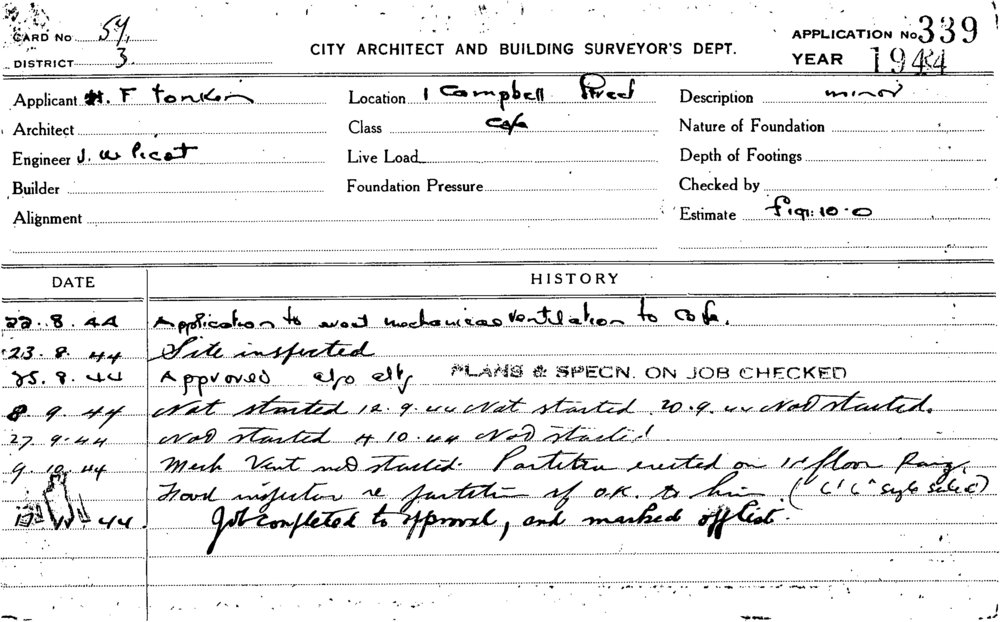 CARD No 54,
DISTRICT 3
CITY ARCHITECT AND BUILDING SURVEYOR'S DEPT.
APPLICATION No 339
YEAR 1944
Applicant H. F Tonkin Location 1 Campbell Street Description minor
Architect Class Cafe Nature of Foundation
Engineer J. W Picot Live Load Depth of Footings
Builder Foundation Pressure Checked by
Alignment Estimate £191:10-0
DATE HISTORY
22.8.44 Application to erect mechanical ventilation to Cafe.
23.8.44 Site inspected
25.8.44 Approved PLANS & SPECN. ON JOB CHECKED
8 9.44 Not started 12.9.44 Not started 20.9.44 Not started.
27.9.44 Not started 4 10.44 Not started
9.10.44 Mech Vent not started. Partition erected on 1st floor Rang
Food inspector re partition if O.K. to him. (6'6"
44. Job completed to approval, and marked off list.